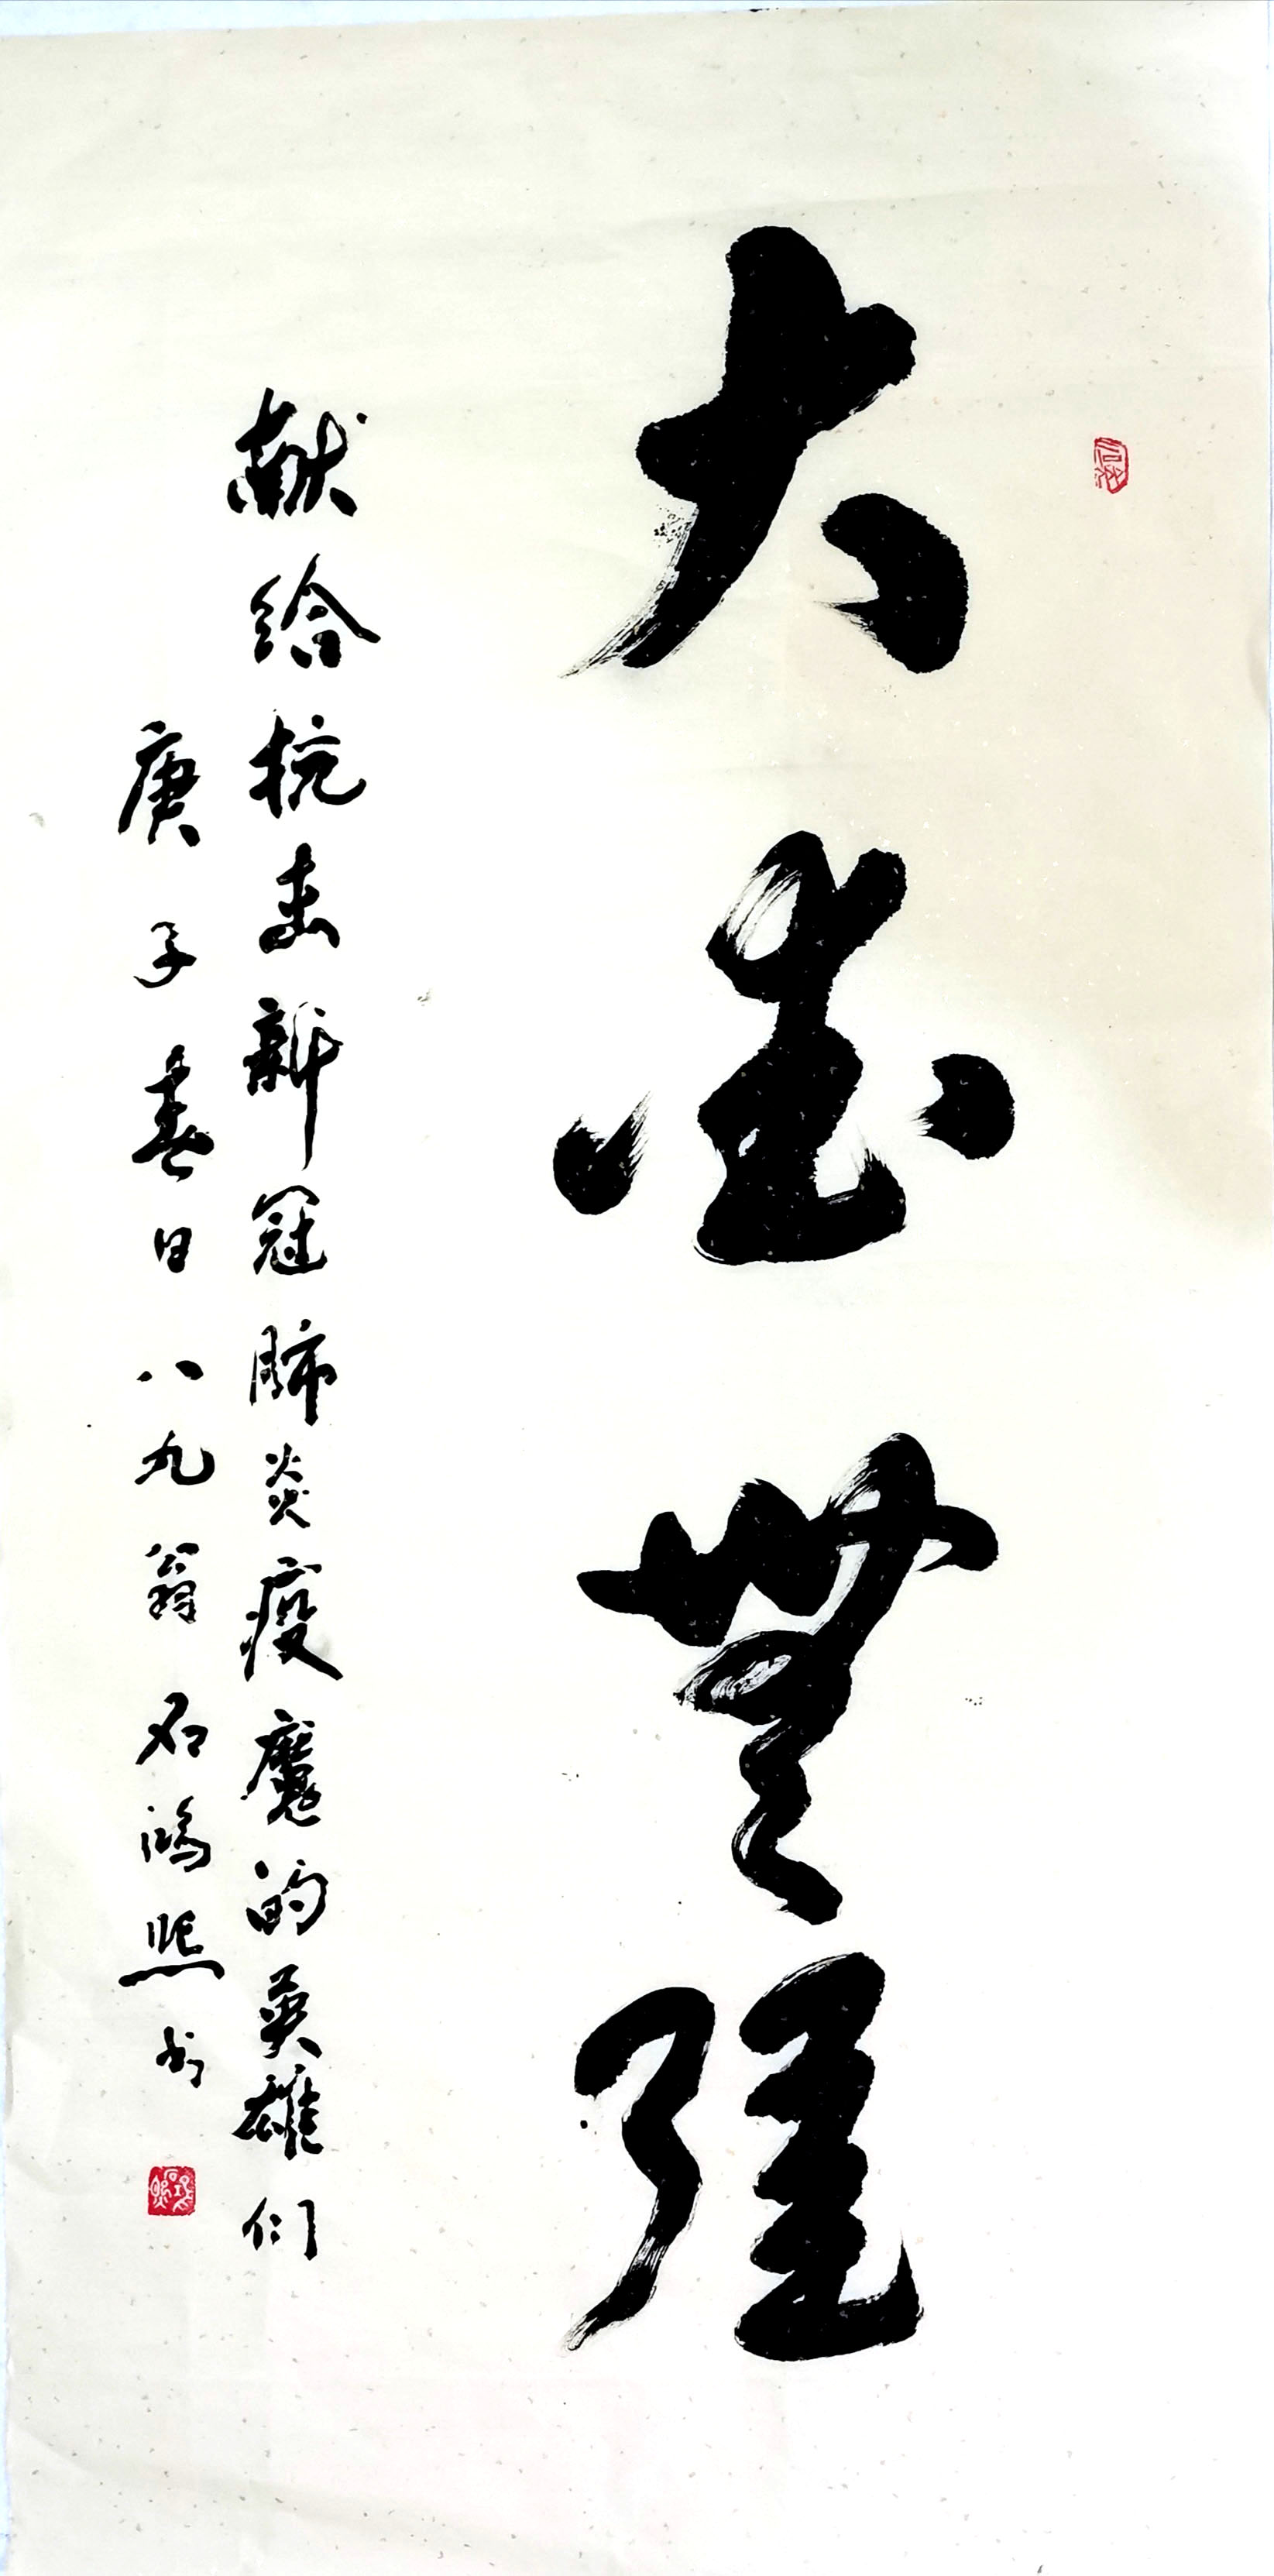 大爱無疆
献给抗击新冠肺炎疫魔的英雄们
庚子春日八九翁石鸿熙书